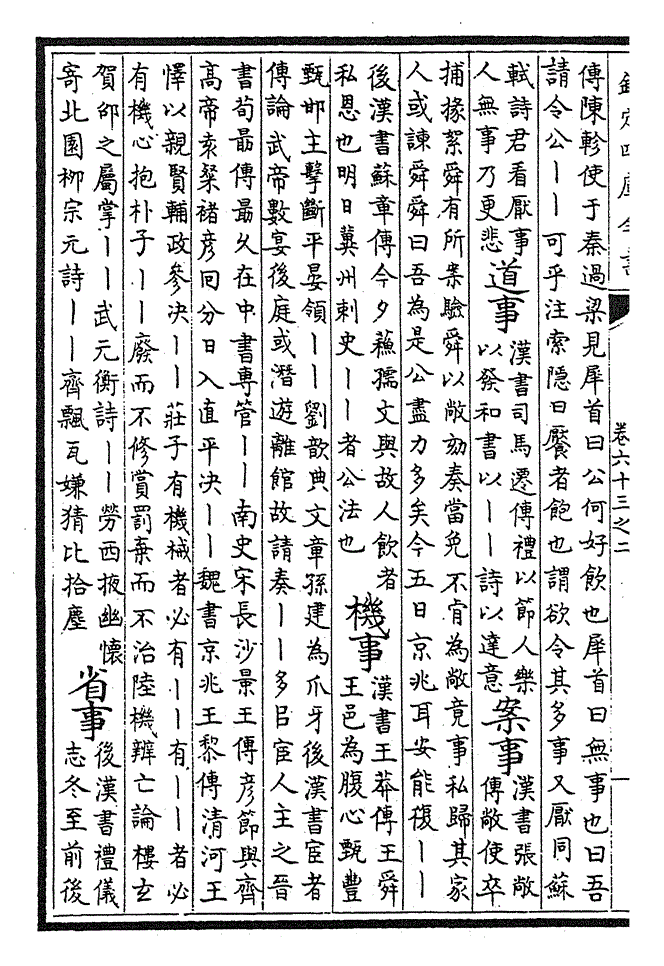 欽定四庫全書
卷六十三之二
傳陳軫使于秦過梁見犀首曰公何好飲也犀首曰無事也曰吾
請令公丨丨可乎注索隱曰饜者飽也謂欲令其多事又厭同蘇
軾詩君看厭事
人無事乃更悲
道事
漢書司馬遷傳禮以節人樂
以發和書以丨丨詩以達意
案事
漢書張敞
傳敞使卒
捕掾絮舜有所案驗舜以敞劾奏當免不肯為敞竟事私歸其家
人或諫舜舜曰吾為是公盡力多矣今五日京兆耳安能復丨丨
後漢書蘇章傳今夕蘓孺文與故人飲者
私恩也明日冀州刺史丨丨者公法也
機事
漢書王莽傳王舜
王邑為腹心甄豐
甄邯主擊斷平晏領丨丨劉歆典文章孫建為爪牙後漢書宦者
傳論武帝數宴後庭或潛遊離館故請奏丨丨多㠯宦人主之晉
書荀勗傳勗久在中書專管丨丨南史宋長沙景王傳彦節與齊
高帝袁粲褚彦回分日入直平決丨丨魏書京兆王黎傳清河王
懌以親賢輔政參決丨丨莊子有機械者必有丨丨有丨丨者必
有機心抱朴子丨丨廢而不修賞罰棄而不治陸機辨亡論樓玄
賀卲之屬掌丨丨武元衡詩丨丨勞西掖幽懷
寄北園柳宗元詩丨丨齊飄瓦嫌猜比拾塵
省事
後漢書禮儀
志冬至前後